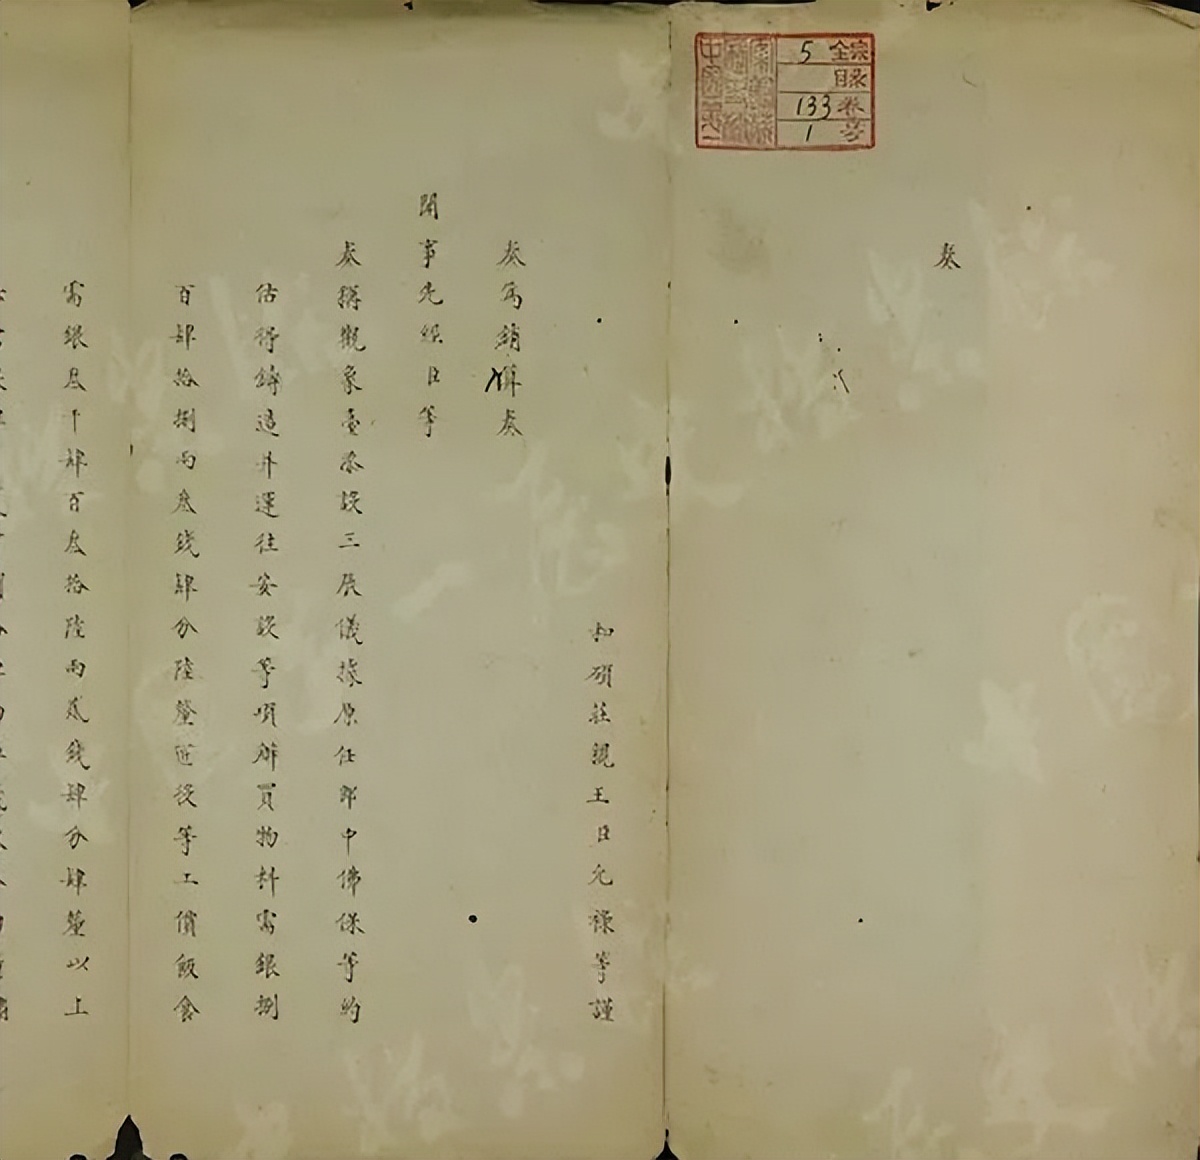 全宗 5
目录
卷 133
号 1
奏
和碩莊親王臣允祿等謹
奏為銷算奏
聞事先經臣等
奏稱觀象臺添設三辰儀據原任郎中佛保等約
估得鑄造并運往安設等項辦買物料需銀捌
百肆拾捌兩叁錢肆分陸釐匠役等工價飯食
需銀叁千肆百叁拾陸兩貳錢肆分肆釐以上